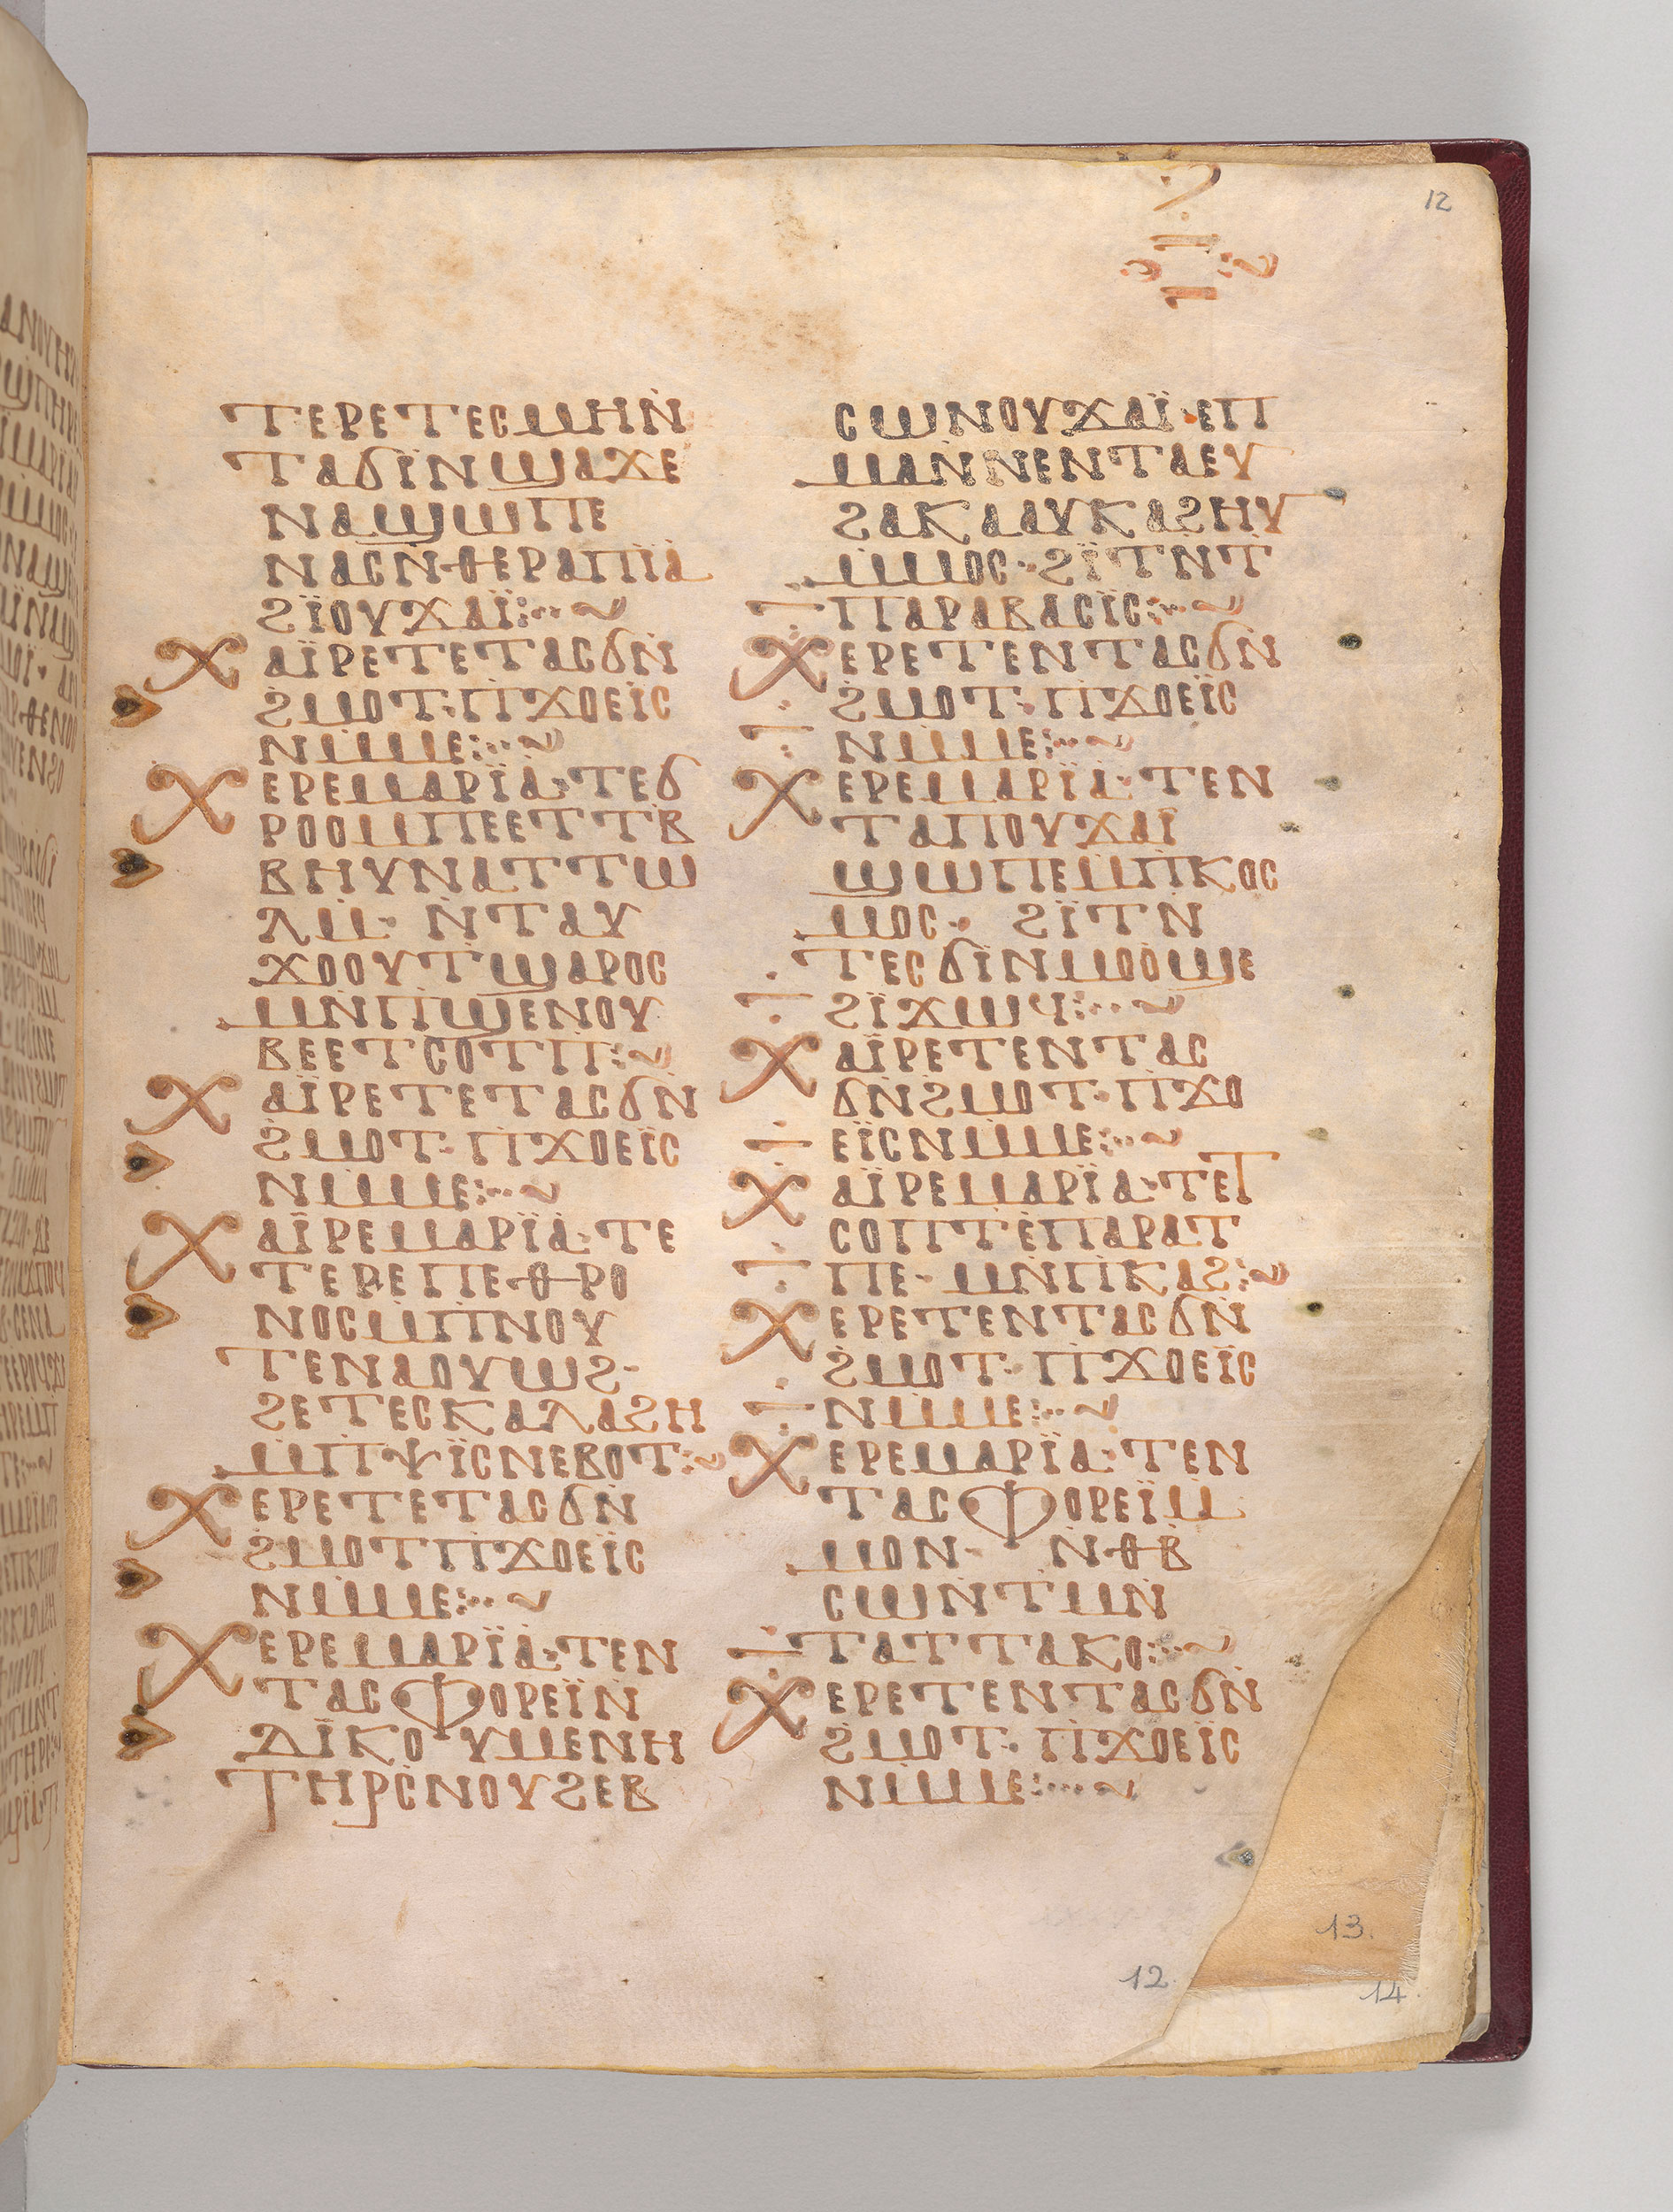 12
ⲧⲉⲣⲉⲧⲉⲥⲙⲏⲛ̇
ⲧⲁϭⲓ̈ⲛϣⲁϫⲉ
ⲛⲁϣⲱⲡⲉ
ⲛⲁⲥⲛ̇ⲑⲉⲣⲁⲡⲓ̈ⲁ
ϩⲓ̈ⲟⲩϫⲁⲓ̈:··~
ⲭⲁⲓ̈ⲣⲉⲧⲉⲧⲁⲥϭⲛ̇
ϩ̇ⲙⲟⲧ·ⲡ̇ϫⲟⲉⲓ̈ⲥ
ⲛⲙ̇ⲙⲉ:··~
ⲭⲉⲣⲉⲙⲁⲣⲓ̈ⲁ·ⲧⲉϭ
ⲣⲟⲟⲙⲡⲉⲉⲧⲧⲃ̇
ⲃⲏⲩⲛⲁⲧⲧⲱ
ⲗⲙ̇· ⲛ̇ⲧⲁⲩ
ϫⲟⲟⲩⲧ̇ϣⲁⲣⲟⲥ
ⲙⲛ̇ⲡ̇ϣⲉⲛⲟⲩ
ⲃⲉⲉⲧⲥⲟⲧⲡ̇:~
ⲭⲁⲓ̈ⲣⲉⲧⲉⲧⲁⲥϭⲛ̇
ϩ̇ⲙⲟⲧ·ⲡ̇ϫⲟⲉⲓ̈ⲥ
ⲛⲙ̇ⲙⲉ:··~
ⲭⲁⲓ̈ⲣⲉⲙⲁⲣⲓ̈ⲁ·ⲧⲉ
ⲧⲉⲣⲉⲡⲉⲑⲣⲟ
ⲛⲟⲥⲙ̇ⲡ̇ⲛⲟⲩ
ⲧⲉⲛⲁⲟⲩⲱϩ·
ϩⲉⲧⲉⲥⲕⲁⲗⲁϩⲏ
ⲙ̇ⲡ̇ⲯⲓ̈ⲥⲛⲉⲃⲟⲧ:~
ⲭⲉⲣⲉⲧⲉⲧⲁⲥϭⲛ̇
ϩ̇ⲙⲟⲧⲡ̇ϫⲟⲉⲓ̈ⲥ
ⲛⲙ̇ⲙⲉ:··~
ⲭⲉⲣⲉⲙⲁⲣⲓ̈ⲁ·ⲧⲉⲛ
ⲧⲁⲥⲫⲟⲣⲉⲓ̈ⲛ
ⲇⲓ̈ⲕⲟⲩⲙⲉⲛⲏ
ⲧⲏⲣⲥ̇ⲛⲟⲩϩⲉⲃ
ⲥⲱⲛⲟⲩϫⲁⲓ̈·ⲉⲡ
ⲙⲁⲛ̇ⲛⲉⲛⲧⲁⲉⲩ
ϩⲁⲕⲁⲁⲩⲕⲁϩⲏⲩ
ⲙ̇ⲙⲟⲥ·ϩⲓ̈ⲧⲛ̇ⲧ̇
ⲡⲁⲣⲁⲃⲁⲥⲓ̈ⲥ:··~
ⲭⲉⲣⲉⲧⲉⲛⲧⲁⲥϭⲛ̇
ϩ̇ⲙⲟⲧ·ⲡ̇ϫⲟⲉⲓ̈ⲥ
ⲛⲙ̇ⲙⲉ:··~
ⲭⲉⲣⲉⲙⲁⲣⲓ̈ⲁ·ⲧⲉⲛ
ⲧⲁⲡⲟⲩϫⲁⲓ̈
ϣⲱⲡⲉⲙ̇ⲡ̇ⲕⲟⲥ
ⲙⲟⲥ· ϩⲓ̈ⲧⲛ̇
ⲧⲉⲥϭⲓ̈ⲛⲙⲟⲟϣⲉ
ϩⲓ̈ϫⲱϥ:··~
ⲭⲁⲓ̈ⲣⲉⲧⲉⲛⲧⲁⲥ
ϭⲛ̇ϩ̇ⲙⲟⲧ·ⲡ̇ϫⲟ
ⲉⲓ̈ⲥⲛⲙ̇ⲙⲉ:··~
ⲭⲁⲓ̈ⲣⲉⲙⲁⲣⲓ̈ⲁ·ⲧⲉⲧ
ⲥⲟⲡⲧ̇ⲉⲡⲁⲣⲁⲧ
ⲡⲉ·ⲙⲛ̇ⲡ̇ⲕⲁϩ:~
ⲭⲉⲣⲉⲧⲉⲛⲧⲁⲥϭⲛ̇
ϩ̇ⲙⲟⲧ·ⲡ̇ϫⲟⲉⲓ̈ⲥ
ⲛⲙ̇ⲙⲉ:··~
ⲭⲉⲣⲉⲙⲁⲣⲓ̈ⲁ·ⲧⲉⲛ
ⲧⲁⲥⲫⲟⲣⲉⲓ̈ⲙ̇
ⲙⲟⲛ· ⲛ̇ⲑⲃ̇
ⲥⲱⲛ̇ⲧ̇ⲙⲛ̇
ⲧⲁⲧⲧⲁⲕⲟ:··~
ⲭⲉⲣⲉⲧⲉⲛⲧⲁⲥϭⲛ̇
ϩ̇ⲙⲟⲧ·ⲡ̇ϫⲟⲉⲓ̈ⲥ
ⲛⲙ̇ⲙⲉ:··~
13.
12.
14.